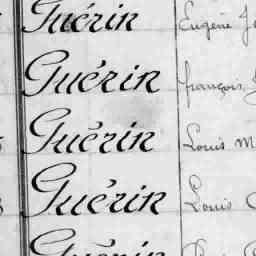 Guérin Eugène
Guérin François
Guérin Louis M
Guérin Louis
Guérin